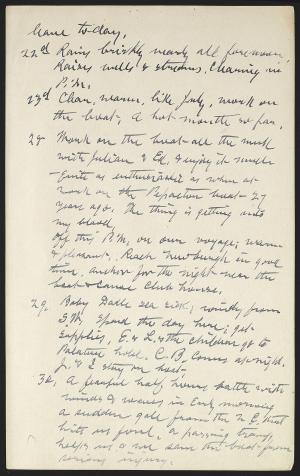 leave to-day,
22d Rains briskly nearly all forenoon,
Raises wells & streams, Clearing in
P.M.
23d Clear, warm, like July, work on
the boat, A hot month so far.
28 Work on the boat all the week
with Julian & Ed, & enjoy it much
Quite as enthusiastic as when at
work on the Pepacton boat 27
years ago. The thing is getting into
my blood.
Off this P.M. on our voyage; warm
& pleasant, Reach Newburgh in good
time, anchor for the night near the
boat & canoe Club house,
29, Baby sea sick; windy from
S.W. Spend the day here; get
supplies, E. & the children go to
Palatine hotel. C. B. comes at night.
J. & I stay on boat,
30, A fearful half hours battle with
winds & waves in early morning
a sudden gale from the N.E.
hits us, a passing
helps us & we save the boat from
serious injury.